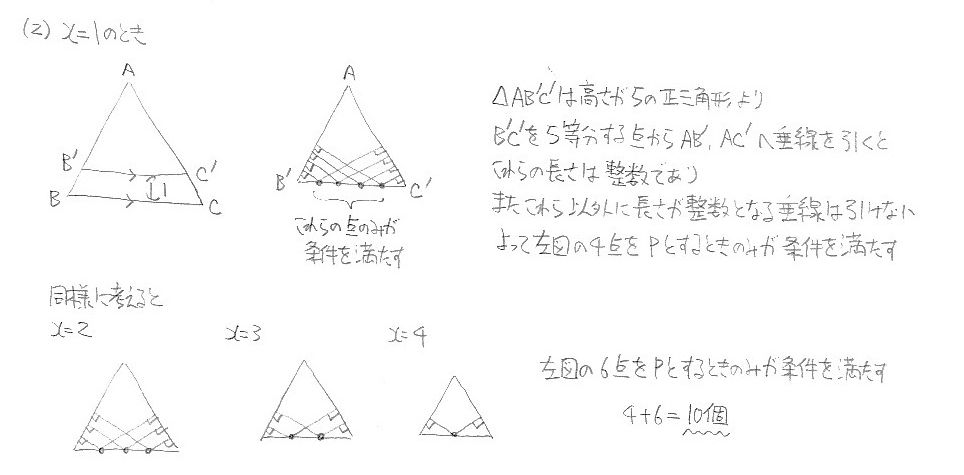 (2) x=1のとき
A
B'
C'
B
1
C
A
B'
C'
これらの点のみが
条件を満たす
△AB'C'は高さが5の正三角形より
B'C'を5等分する点からAB', AC'へ垂線を引くと
これらの長さは整数であり
またこれら以外に長さが整数となる垂線は引けない
よって左図の4点をPとするときのみが条件を満たす
同様に考えると
x=2
x=3
x=4
左図の6点をPとするときのみが条件を満たす
4+6=10個